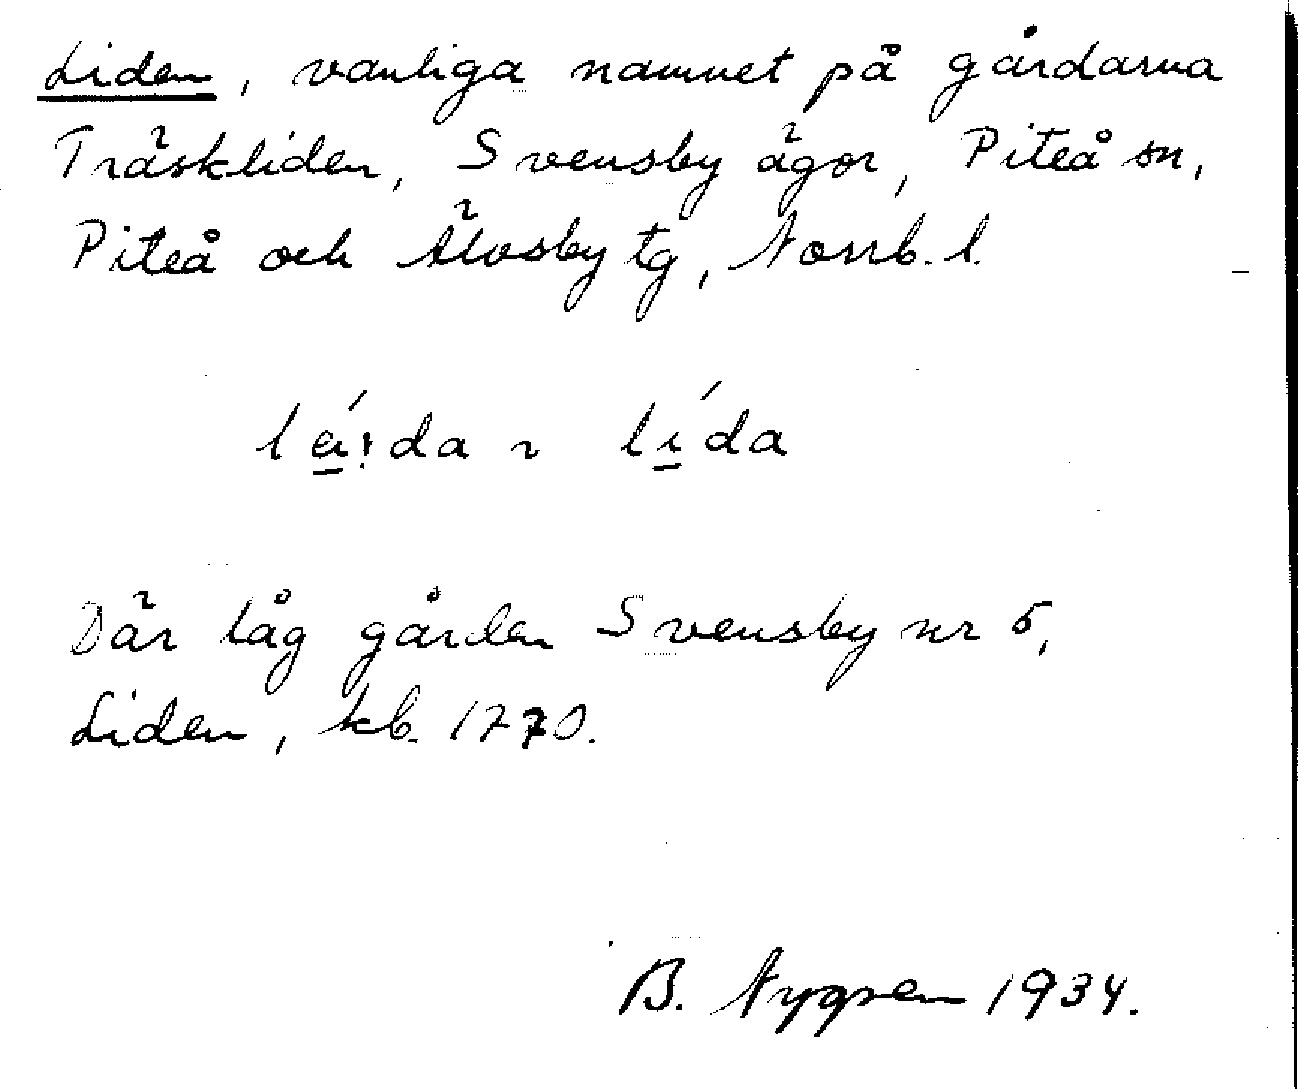 Liden, vanliga namnet på gårdarna
Träskliden, Svensby ägor, Piteå sn,
Piteå och Älvsby tg, Norrb. l.
léi̠da ~ lí̠da
Där låg gården Svensby nr 5,
Liden, kb. 1770.
B. Nygren 1934.